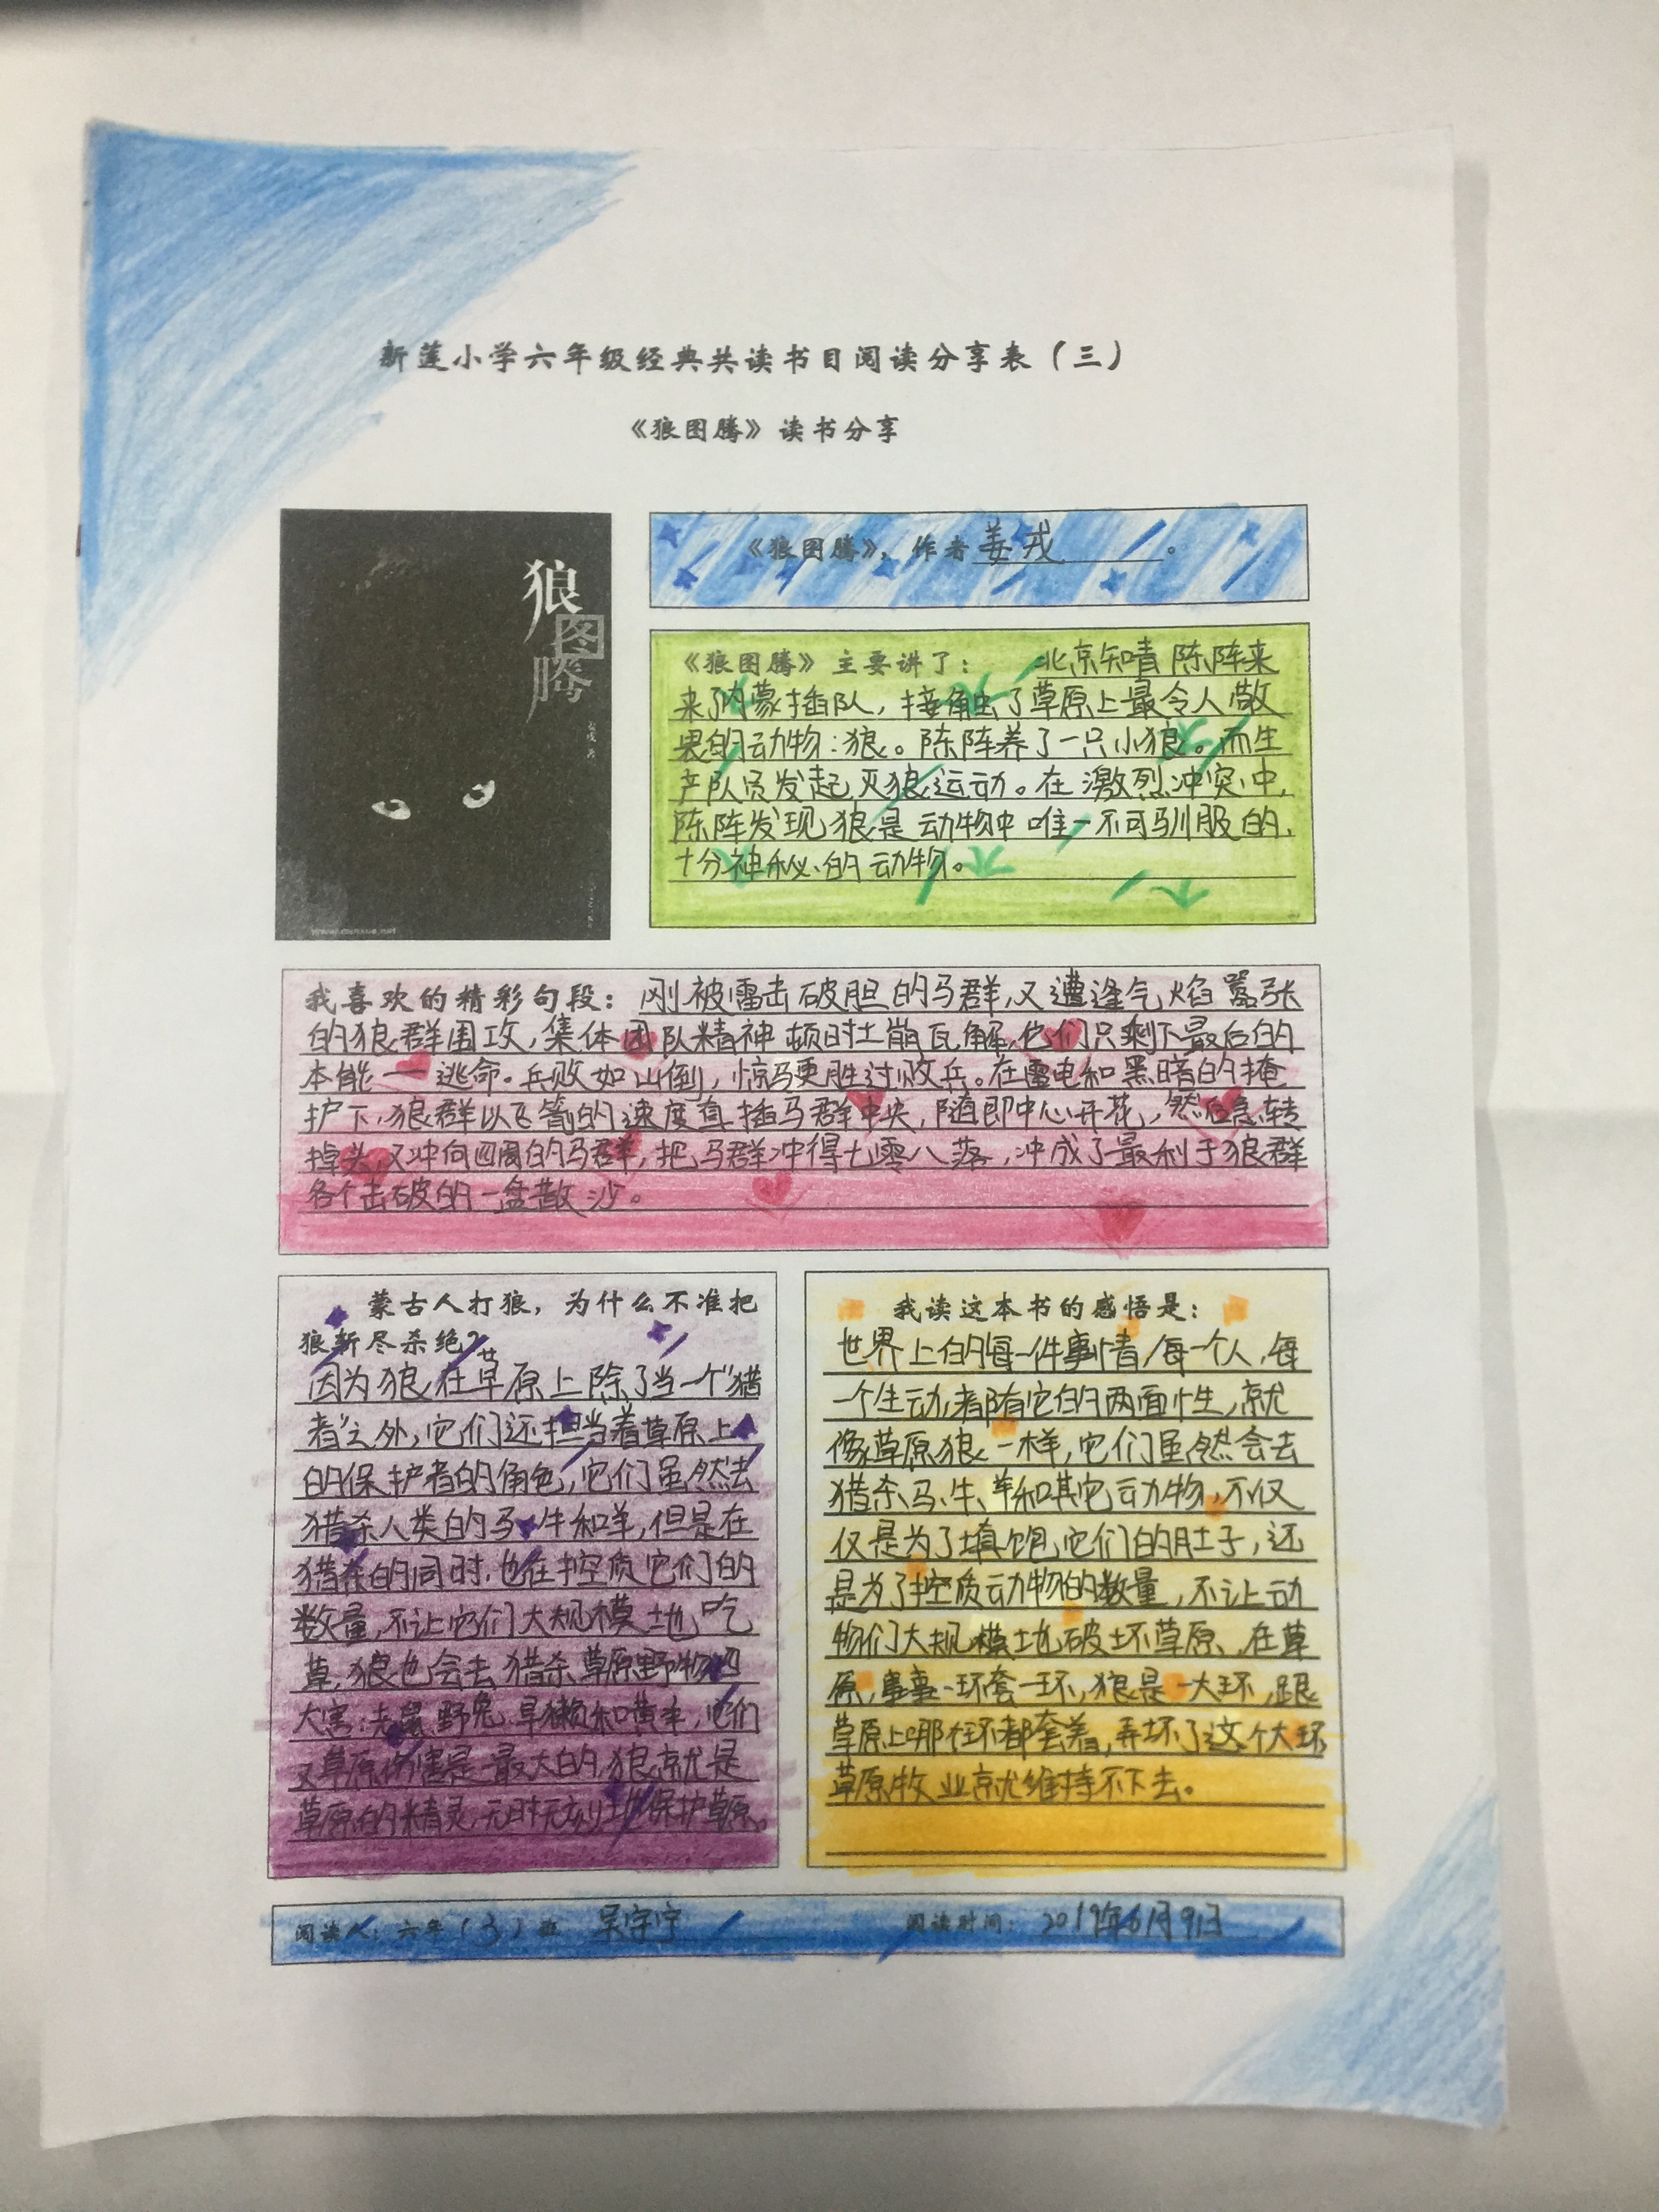 新莲小学六年级经典共读书目阅读分享表（三）
《狼图腾》读书分享
狼
图
腾
《狼图腾》，作者姜戎。
《狼图腾》主要讲了：北京知青陈阵来
来了内蒙插队，接触了草原上最令人敬
畏的动物：狼。陈阵养了一只小狼。而生
产队员发起灭狼运动。在激烈冲突中，
陈阵发现狼是动物中唯一不可驯服的，
十分神秘的动物。
我喜欢的精彩句段：刚被雷击破胆的马群，又遭逢气焰嚣张
的狼群围攻，集体团队精神顿时土崩瓦解，他们只剩下最后的
本能——逃命。兵败如山倒，惊马更胜过败兵。在雷电和黑暗的掩
护下，狼群以飞箭的速度直插马群中央，随即中心开花，然后急转
掉头，又冲向四周的马群，把马群冲得七零八落，冲成了最利于狼群
各个击破的一盘散沙。
蒙古人打狼，为什么不准把
狼斩尽杀绝？
因为狼在草原上除了当一个“猎
者”之外，它们还担当着草原上
的保护者的角色，它们虽然去
猎杀人类的马、牛和羊，但是在
猎杀的同时，也在控质它们的
数量，不让它们大规模地吃
草，狼也会去猎杀草原野物四
大害：老鼠、野兔、旱獭和黄羊，它们
又草原伤害是最大的，狼就是
草原的精灵，无时无刻地保护草原。
我读这本书的感悟是：
世界上的每一件事情，每一个人，每
一个生动，都有它的两面性，就
像草原狼一样，它们虽然会去
猎杀马、牛、羊和其它动物，不仅
仅是为了填饱它们的肚子，还
是为了控质动物的数量，不让动
物们大规模地破坏草原、在草
原，事事一环套一环，狼是一大环，跟
草原上哪在环都套着，弄坏了这个大环
草原牧业就维持不下去。
阅读人：六年（3）班 吴宇宁 阅读时间：2019年6月9日